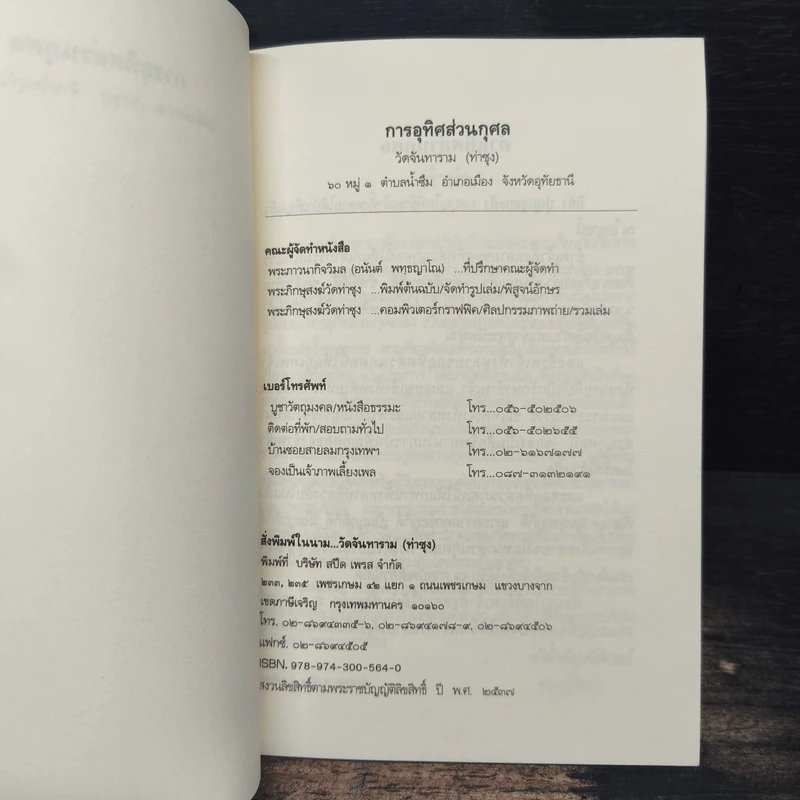 การอุทิศส่วนกุศล
วัดจันทาราม (ท่าซุง)
๖๐ หมู่ ๑ ตำบลน้ำซึม อำเภอเมือง จังหวัดอุทัยธานี
คณะผู้จัดทำหนังสือ
พระภาวนากิจวิมล (อนันต์ พทฺธญาโณ) ...ที่ปรึกษาคณะผู้จัดทำ
พระภิกษุสงฆ์วัดท่าซุง ...พิมพ์ต้นฉบับ/จัดทำรูปเล่ม/พิสูจน์อักษร
พระภิกษุสงฆ์วัดท่าซุง ...คอมพิวเตอร์กราฟฟิค/ศิลปกรรมภาพถ่าย/รวมเล่ม
เบอร์โทรศัพท์
บูชาวัตถุมงคล/หนังสือธรรมะ โทร...๐๕๖-๕๐๒๕๐๖
ติดต่อที่พัก/สอบถามทั่วไป โทร...๐๕๖-๕๐๒๖๕๕
บ้านซอยสายลมกรุงเทพฯ โทร...๐๒-๖๑๖๗๑๗๗
จองเป็นเจ้าภาพเลี้ยงเพล โทร...๐๘๗-๓๑๓๒๑๙๑
สั่งพิมพ์ในนาม...วัดจันทาราม (ท่าซุง)
พิมพ์ที่ บริษัท สปีด เพรส จำกัด
๒๓๓, ๒๓๕ เพชรเกษม ๔๒ แยก ๑ ถนนเพชรเกษม แขวงบางจาก
เขตภาษีเจริญ กรุงเทพมหานคร ๑๐๑๖๐
โทร. ๐๒-๘๖๙๔๓๓๕-๖, ๐๒-๘๖๙๔๑๗๘-๙, ๐๒-๘๖๙๔๕๐๖
แฟกซ์. ๐๒-๘๖๙๔๕๐๕
ISBN. 978-974-300-564-0
สงวนลิขสิทธิ์ตามพระราชบัญญัติลิขสิทธิ์ ปี พ.ศ. ๒๕๓๗